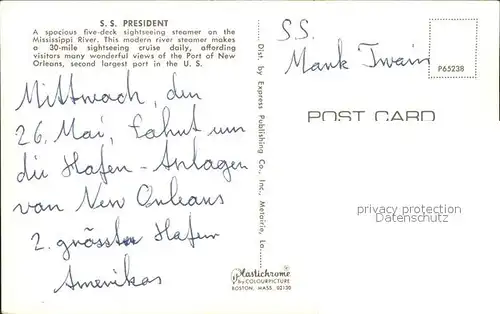 S. S. PRESIDENT
A spacious five-deck sightseeing steamer on the
Mississippi River. This modern river steamer makes
a 30-mile sightseeing cruise daily, affording
visitors many wonderful views of the Port of New
Orleans, second largest port in the U. S.
Mittwoch, den
26. Mai, Fahrt um
die Hafen-Anlagen
von New Orleans
2. grösster Hafen
Amerikas
Dist. by Express Publishing Co., Inc., Metairie, La.
Plastichrome
by COLOURPICTURE
BOSTON, MASS. 02130
S.S.
Mark Twain
P65238
POST CARD
privacy protection